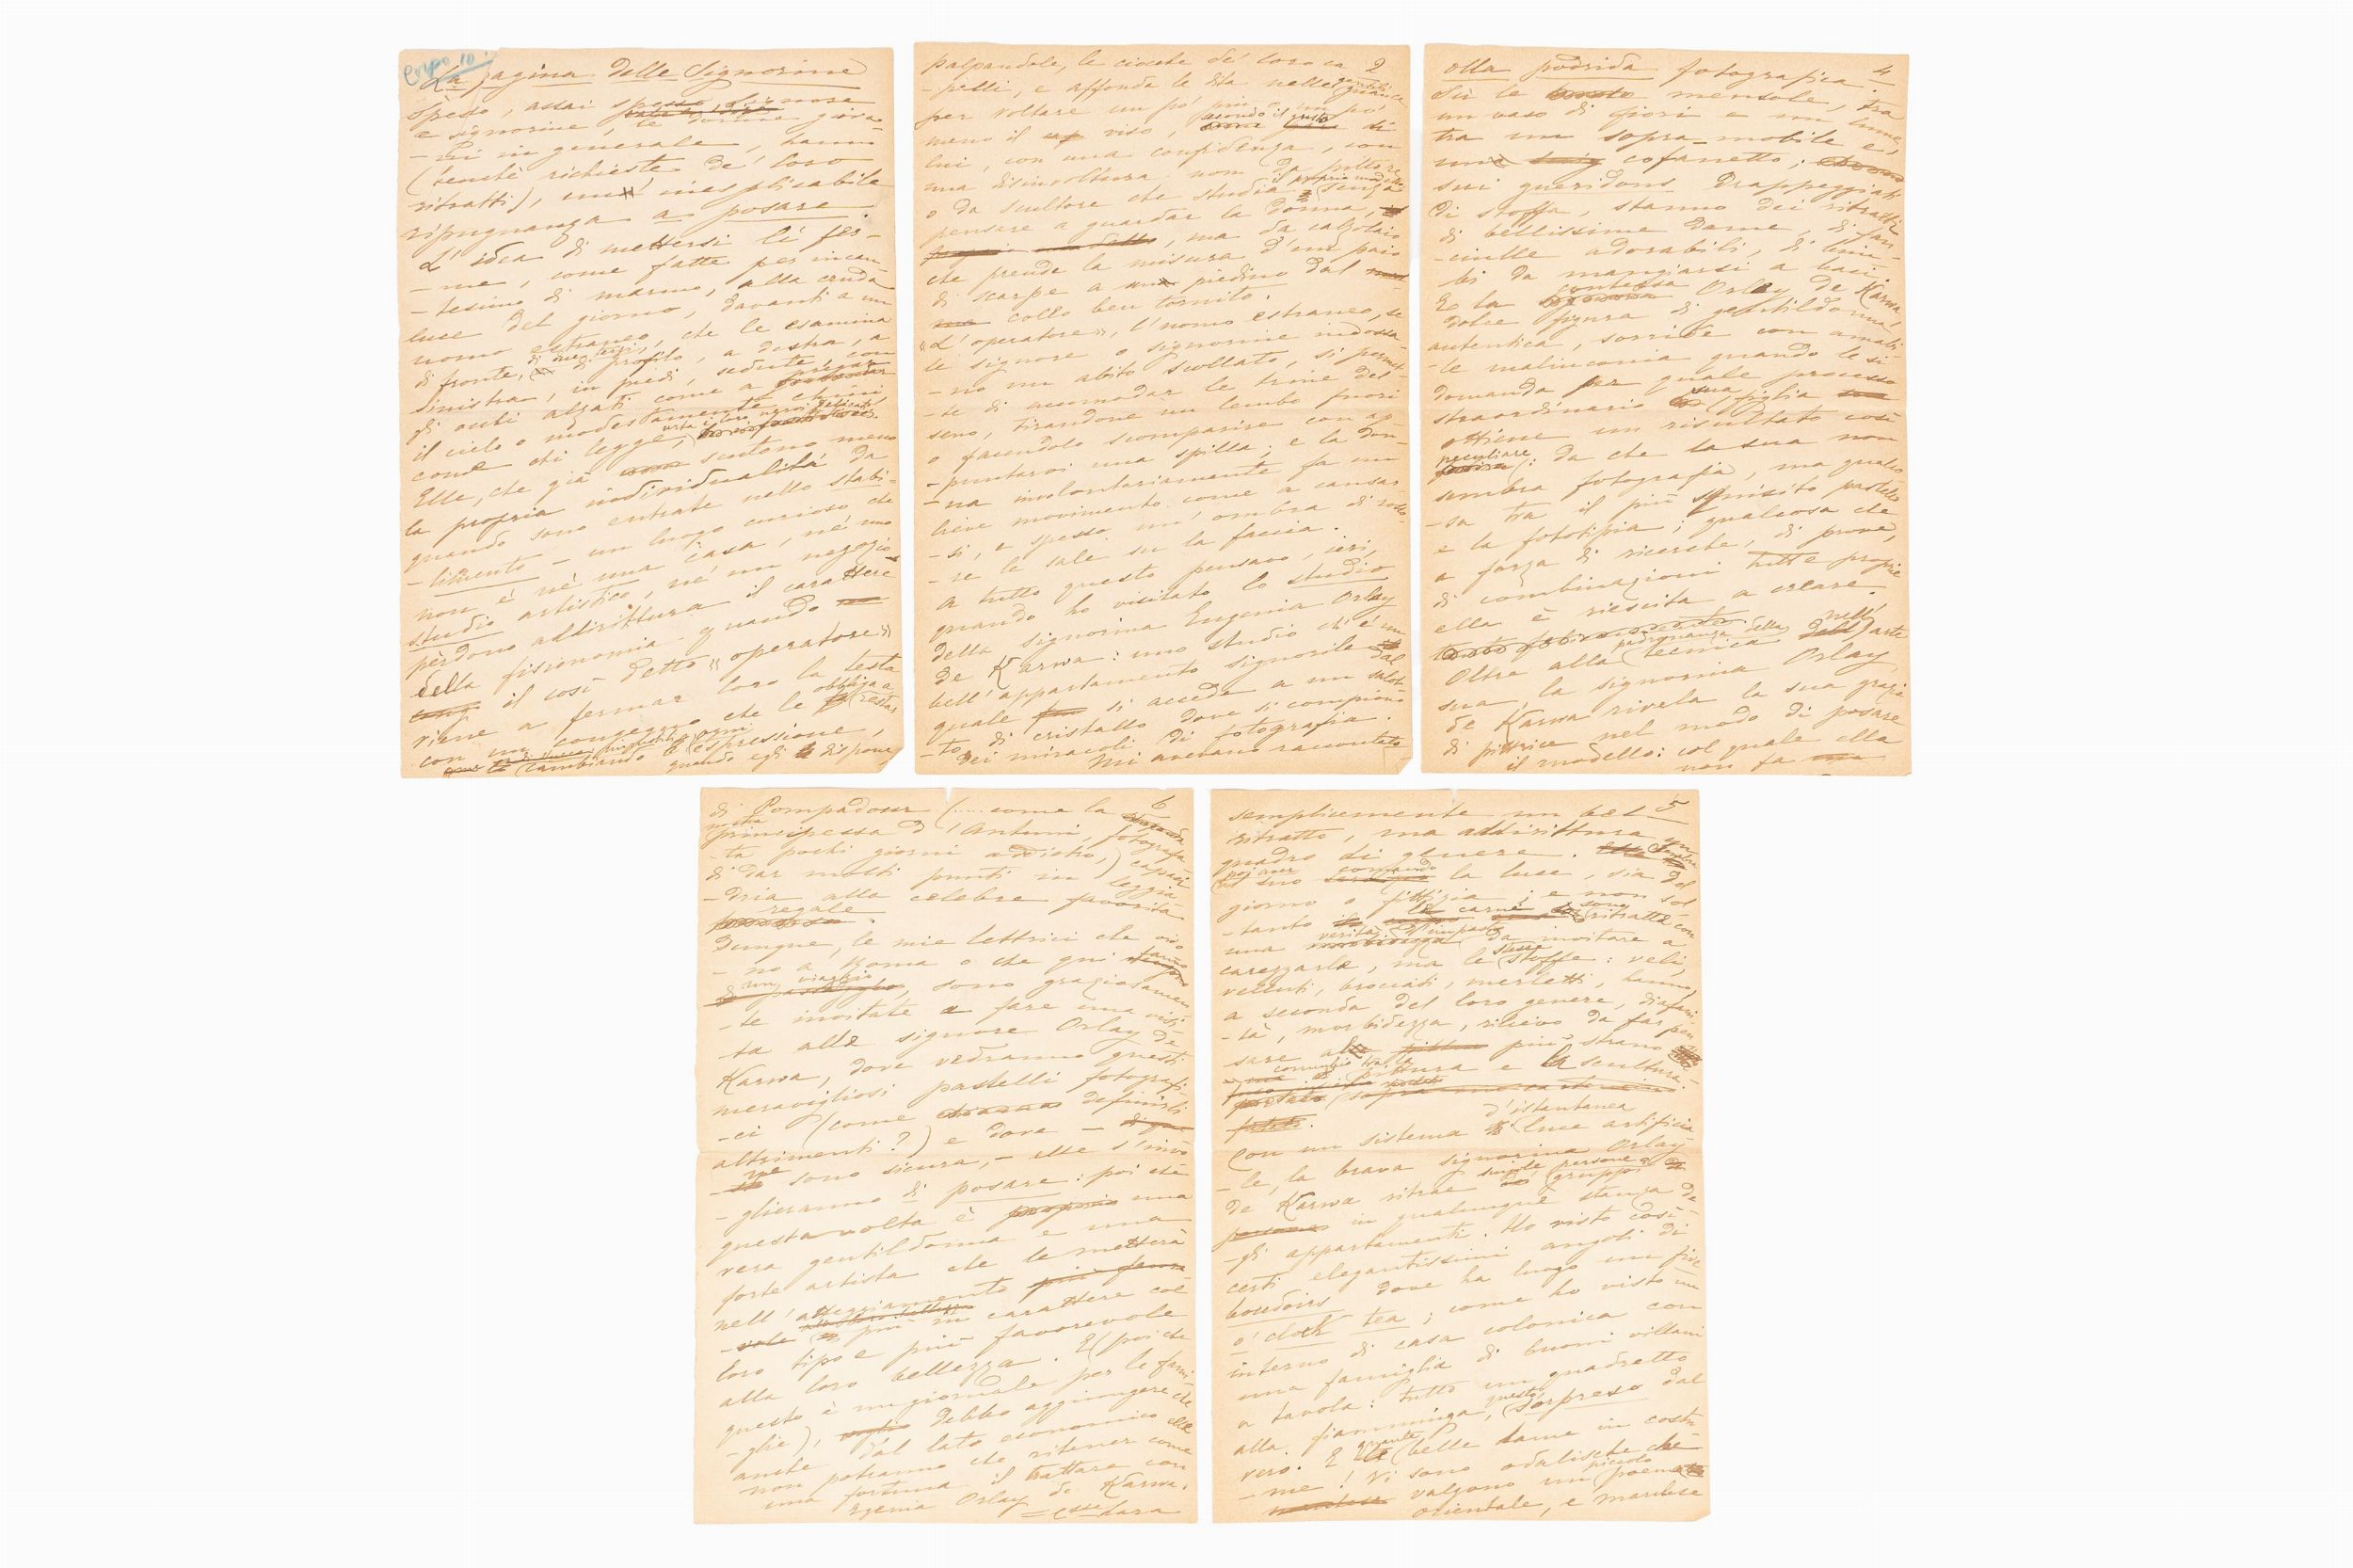 Corpo 10
La pagina delle Signorine
Spesso, assai spesso, signore
e signorine, le donne giova-
-ni in generale, hanno
(benchè richieste de' loro
ritratti), un' inesplicabile
ripugnanza a posare.
L'idea di mettersi lì fer-
-me, come fatte per incan-
-tesimo di marmo, alla cruda
luce del giorno, davanti a un
uomo estraneo, che le esamina
di fronte, di tre terzi, di profilo, a destra, a
sinistra, in piedi, sedute, con
gli occhi alzati come a pregar
il cielo o modestamente chini
come chi legge,
Elle, che già sentono meno
la propria individualità da
quando sono entrate nello stabi-
-limento - un luogo curioso che
non è nè una casa, nè uno
studio artistico, nè un negozio -
pèrdono addirittura il carattere
della fisionomia quando
il così detto "operatore"
viene a fermar loro la testa
con un congegno che le obbliga a restar
cambiando espressione,
quando egli le dispone
2
palpandole, le ciocche de' loro ca
-pelli, e affonda le dita nelle guance
per voltare un po' più o un po'
meno il viso, secondo il gusto di
lui, con una confidenza, con
una disinvoltura non da pittore
o da scultore che studia il proprio modello senza
pensare a guardar la donna,
ma da calzolaio
che prende la misura d'un paio
di scarpe a un piedino dal
collo ben tornito.
"L'operatore", l'uomo estraneo, se
le signore o signorine indossa-
-no un abito scollato, si permet-
-te di accomodar le trine del
seno, tirandone un lembo fuori
o facendolo scomparire con ap-
-puntarvi una spilla; e la don-
-na involontariamente fa un
lieve movimento come a cansar-
-si, e spesso un' ombra di rosso-
-re le sale su la faccia.
A tutto questo pensavo, ieri,
quando ho visitato lo studio
della signorina Eugenia Orlay
de Karwa: uno studio ch'è un
bell'appartamento signorile dal
quale si accede a un salot-
-to di cristallo dove si compiono
dei miracoli di fotografia.
Mi avevano raccontato
4
olla podrida fotografica.
Sù le mensole, tra
un vaso di fiori e un lume,
tra un sopra-mobile e
un cofanetto,
sui queridons drappeggiati
di stoffa, stanno dei ritratti
di bellissime dame, di fan-
-ciulle adorabili, di bim-
-bi da mangiarsi a baci.
E la contessa Orlay de Karwa,
dolce figura di gentildonna
autentica, sorride con amabi-
-le malinconia quando le si
domanda per quale processo
straordinario sua figlia
ottiene un risultato così
peculiare: da che la sua non
sembra fotografia, ma qualco-
-sa tra il più squisito pastello
e la fototipia; qualcosa che
a forza di ricerche, di prove,
di combinazioni tutte proprie
ella è riescita a creare.
Oltre alla padronanza della tecnica nell'arte
sua, la signorina Orlay
de Karwa rivela la sua grazia
di pittrice nel modo di posare
il modello: col quale ella
non fa
6
di Pompadour (..... come la
principessa d'Antuni, fotografa-
-ta pochi giorni addietro,) capaci
di dar molti punti in leggia-
-dria alla celebre favorita
regale.
Dunque, le mie lettrici che vivo
-no a Roma o che qui fanno
un viaggio, sono graziosamen-
-te invitate a fare una visi-
-ta alle signore Orlay de
Karwa, dove vedranno questi
meravigliosi pastelli fotografi-
-ci (come definirli
altrimenti?) e dove -
ne sono sicura, - elle s'invo
-glieranno di posare: poi chè
questa volta è una
vera gentildonna e una
forte artista che le metterà
nell'atteggiamento
più in carattere col
loro tipo e più favorevole
alla loro bellezza. E (poi che
questo è un giornale per le fami-
-glie), debbo aggiungere che
anche dal lato economico elle
non potranno che ritener come
una fortuna il trattare con
Egenia Orlay de Karwa.
= Csse Lara
5
semplicemente un bel
ritratto, ma addirittura un
quadro di genere.
al suo comando la luce, sia del
giorno o fittizia; e non sol
-tanto le carni sono ritratte con
una verità d'impasto da invitare a
carezzarle, ma le stesse stoffe: veli,
velluti, broccati, merletti, hanno,
a seconda del loro genere, diafani-
-tà, morbidezza, rilievo da far pen
sare al più strano
connubio tra la pittura e la scultura.
Con un sistema d'istantanea luce artificia-
-le, la brava signorina Orlay
de Karwa ritrae singole persone o gruppi
in qualunque stanza de-
-gli appartamenti. Ho visto così
certi elegantissimi angoli di
boudoirs dove ha luogo un five
o' clock tea; come ho visto un
interno di casa colonica con
una famiglia di buoni villani
a tavola: tutto un quadretto
alla fiamminga, questo, sorpreso dal
vero. E quante belle dame in costu
-me! Vi sono odalische che
valgono un piccolo poema
orientale, e marchese